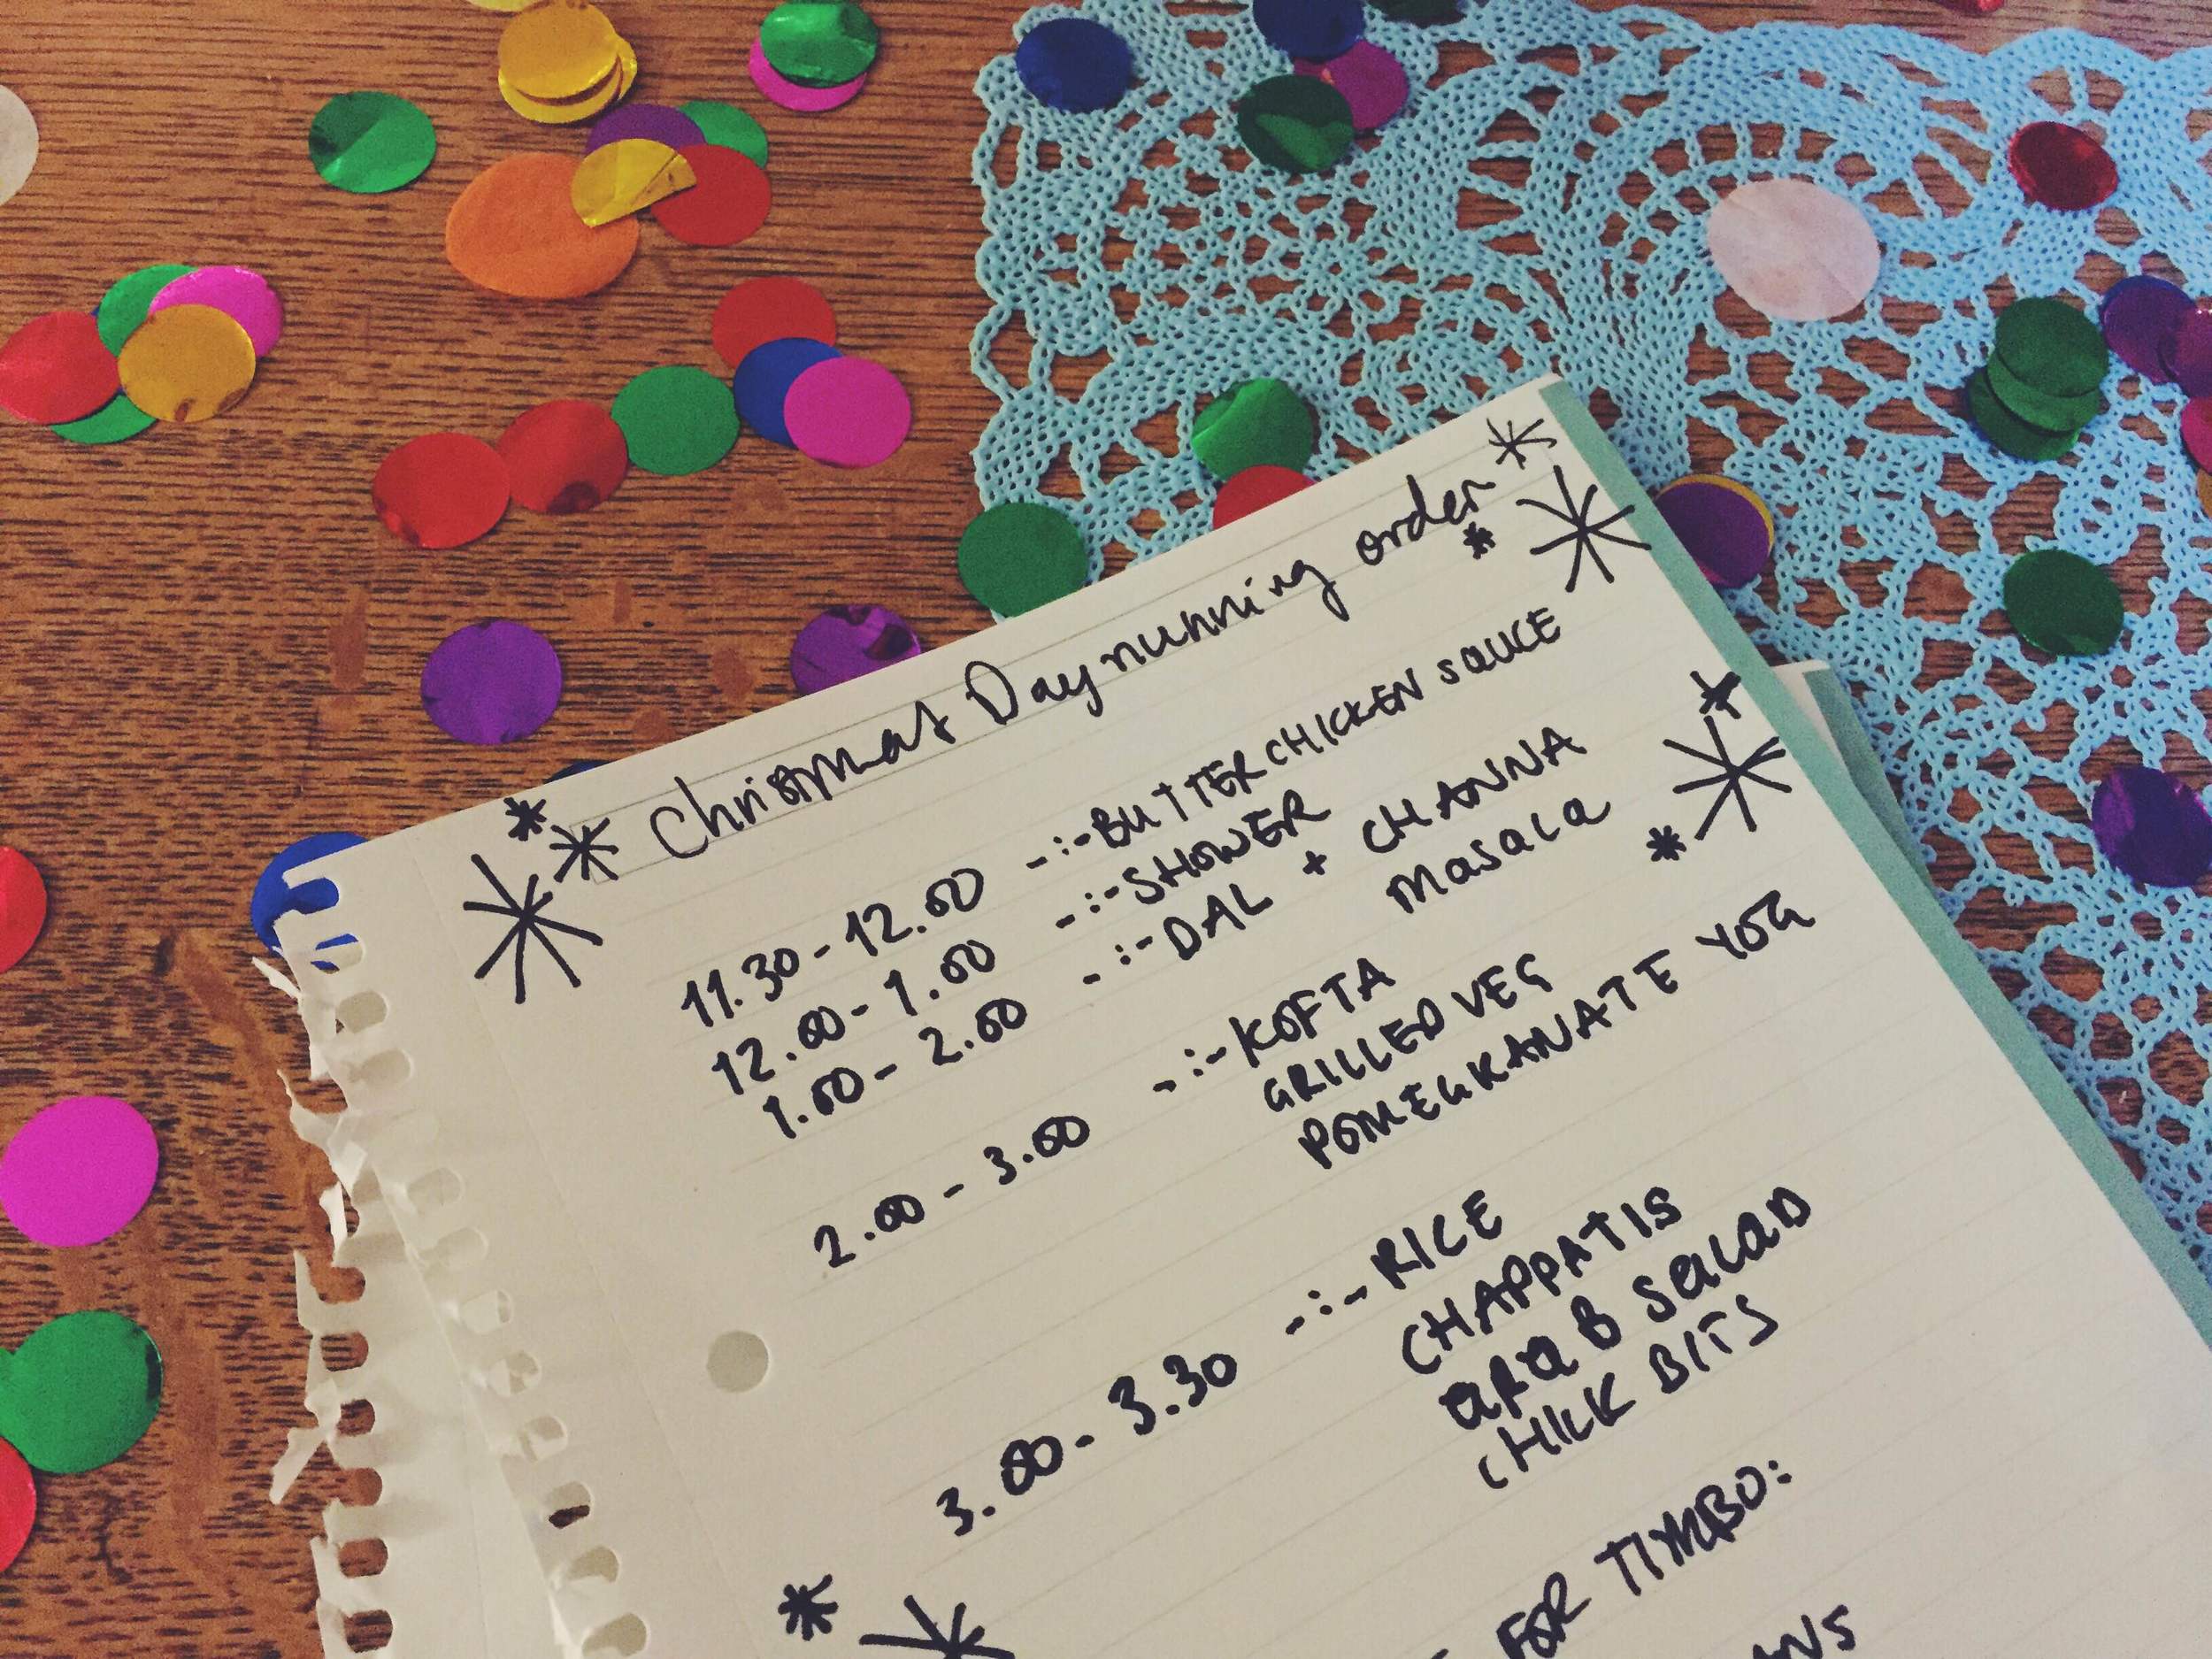 Christmas Day running order
11.30 - 12.00 -:- BUTTER CHICKEN SAUCE
12.00 - 1.00 -:- SHOWER
1.00 - 2.00 -:- DAL + CHANNA
Masala
2.00 - 3.00 -:- KOFTA
GRILLED VEG
POMEGRANATE YOG
3.00 - 3.30 -:- RICE
CHAPPATIS
ARAB SALAD
CHICK BITS
FOR TIMBO: